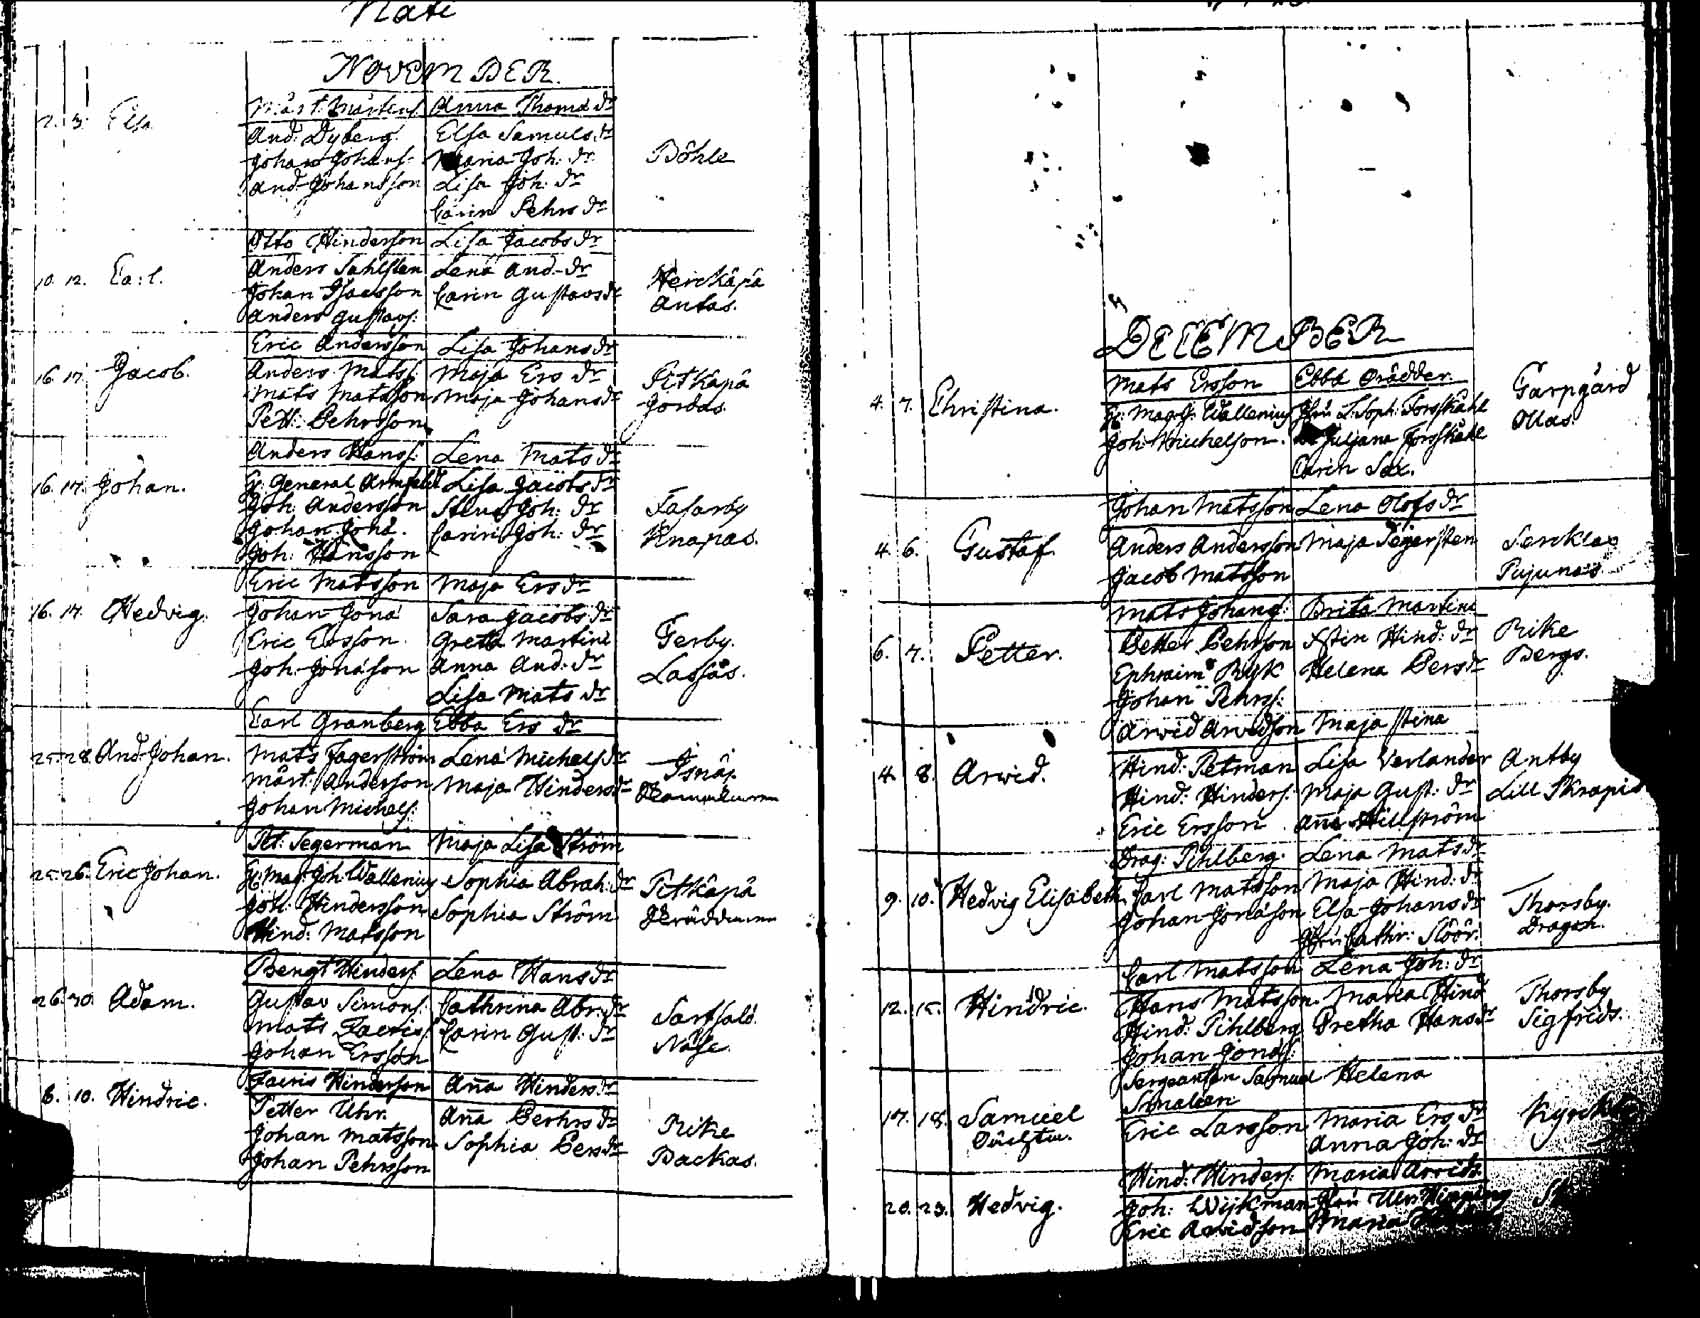 Nati
NOVEMBER.
Mårt: Mårtens. Anna Thomæ dr
2. 3. Elsa And: Dyberg. Elsa Samuels dr
Johan Johans. Maria Joh: dr Böhle
And: Johansson Lisa Joh: dr
Carin Pehrs dr
Otto Hindersson Lisa Jacobs dr
10. 12. Carl. Anders Sahlsten Lena And: dr
Johan Isacsson Carin Gustavs dr Herckäpä
Anders Gustavs. Antas.
Eric Andersson Lisa Johans dr
16. 17. Jacob. Anders Mats. Maja Ers dr
Mats Matsson Maja Johans dr Pitkäpä
Pett: Pehrsson Jordas.
Anders Hans. Lena Mats dr
16. 17. Johan. H: General Armfelt Lisa Jacobs dr
Joh: Andersson Stina Joh: dr Fasarby
Johan Jona. Carin Joh: dr Knapas.
Joh: Hansson
Eric Matsson Maja Ers dr
16. 17. Hedvig. Johan Jona Sara Jacobs dr
Eric Ersson. Greta Martins Gerby.
Joh: Jonasson Anna And: dr Lassas.
Lisa Mats dr
Carl Granberg Ebba Ers dr
25. 28. And: Johan. Mats Fagerström Lena Michels dr
Mårt: Andersson Maja Hinders dr Isnäs
Johan Michels.
Pet: Segerman Maja Lisa Ström
25. 26. Eric Johan. H: Mag: Joh: Wallenius Sophia Abrah: dr Pitkäpä
Joh: Hindersson Sophia Ström
Hind: Matsson
Bengt Hinders. Lena Hans dr
26. 30. Adam. Gustav Simons. Cathrina Abr: dr
Mats Carin Gust: dr Sarfsalö.
Johan Ersson Näse.
Hindersson Anna Hinders dr
8. 10. Hindric. Petter Uhr. Anna Berhrs dr
Johan Matsson Sophia Pers dr Rike
Johan Pehrsson Backas.
DECEMBER
Mats Ersson Ebba Orädder.
4. 7. Christina. H: Mag: J: Wallenius Fru L: Soph: Forsskåhl Garpgård
Joh: Michelson. Juljana Forsskåhl Ollas.
Carin Sax.
Johan Matsson Lena Olofs dr
4. 6. Gustaf Anders Andersson Maja Segersten Sercklax
Jacob Matsson Pujunas.
Mats Johans. Brita Martins
6. 7. Petter. Petter Pehrsson Stin Hind: dr Rike
Ephraim Ryk Helena Pers dr Bergs.
Johan Pehrs.
Arwid Arwidsson Maja Stina
4. 8. Arwid. Hind: Petman Lisa Verlander Antby
Hind: Hinders. Maja Gust: dr Lill Skrapis
Eric Ersson Anna Hillström
Drag: Pihlberg. Lena Mats dr
9. 10. Hedvig Elisabeth Carl Matsson Maja Hind: dr
Johan Jonasson Elsa Johans dr Thorsby.
Fru Cathr: Flöör. Dragon.
Carl Matsson Lena Joh: dr
12. 15. Hindric. Hans Matsson Maria Hind Thorsby
Hind: Pihlberg Pretha Hans dr Sigfrids.
Johan Jonas.
Sergeanten Samuel Helena
Smalen
17. 18. Samuel Eric Larsson Maria Ers dr
Anna Joh: dr
Hind: Hinders. Maria Arvids
20. 23. Hedvig. Joh: Wijkman Fru Ulr: Hipping
Eric Arvidsson Maria